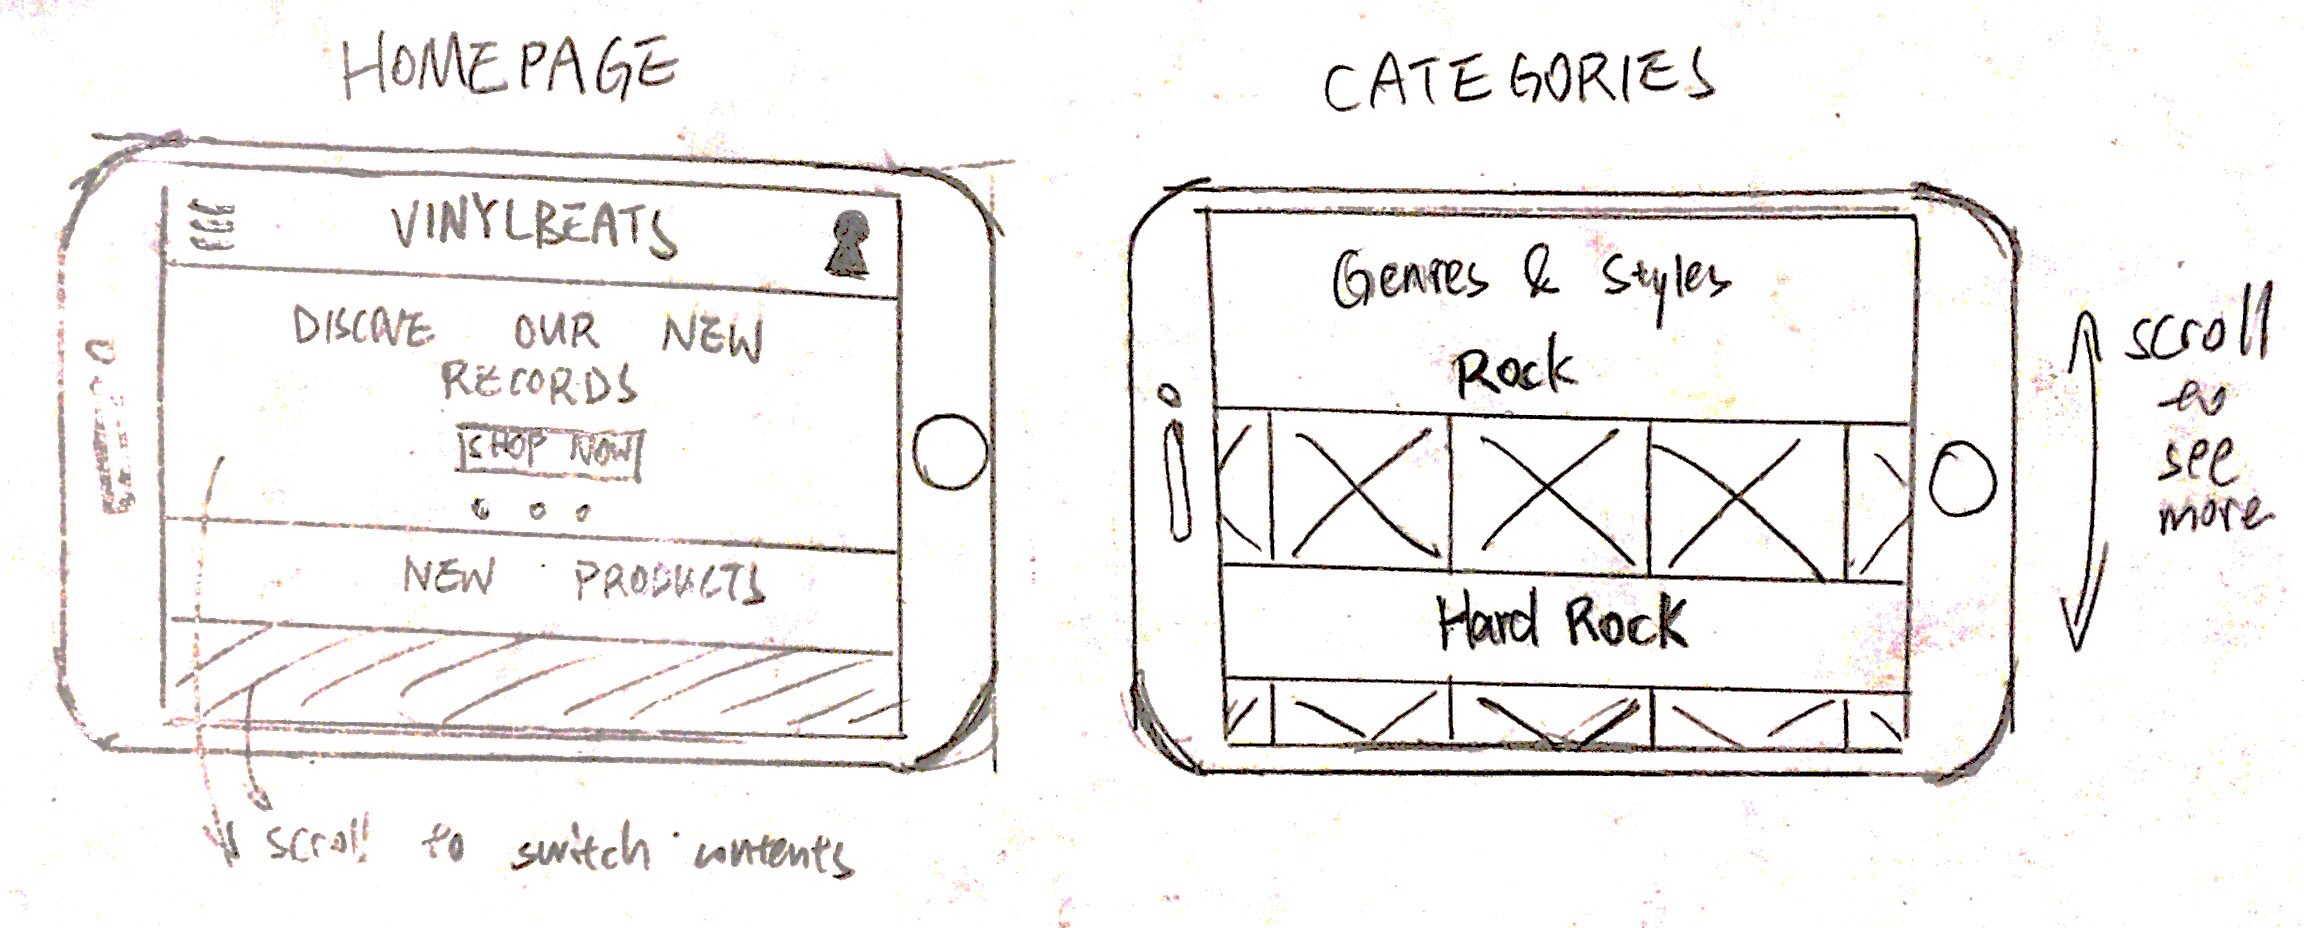 HOMEPAGE
VINYLBEATS
DISCOVE OUR NEW
RECORDS
SHOP NOW
NEW PRODUCTS
scroll to switch contents
CATEGORIES
Genres & Styles
Rock
Hard Rock
scroll
to
see
more